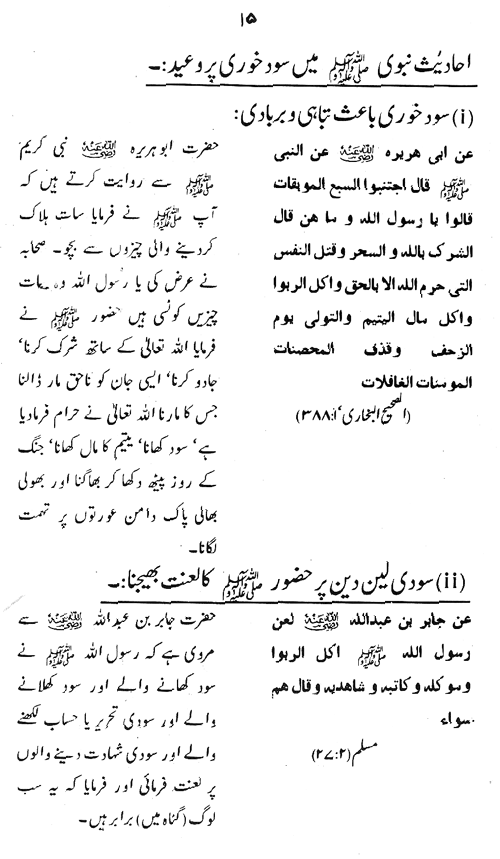 ۱۵
احادیث نبوی ﷺ میں سود خوری پر وعید:۔
(i) سود خوری باعث تباہی و بربادی:
عن ابی هریره رضی اللہ عنہ عن النبی
ﷺ قال اجتنبوا السبع الموبقات
قالوا یا رسول الله و ما هن قال
الشرک بالله و السحر وقتل النفس
التی حرم الله الا بالحق واکل الربوا
واکل مال الیتیم والتولی یوم
الزحف وقذف المحصنات
المومنات الغافلات
(الصحیح البخاری، ۱:۳۸۸)
حضرت ابو ہریرہ رضی اللہ عنہ نبی کریم
ﷺ سے روایت کرتے ہیں کہ
آپ ﷺ نے فرمایا سات ہلاک
کر دینے والی چیزوں سے بچو۔ صحابہ
نے عرض کی یا رسول اللہ وہ سات
چیزیں کونسی ہیں حضور ﷺ نے
فرمایا اللہ تعالیٰ کے ساتھ شرک کرنا‘
جادو کرنا‘ ایسی جان کو ناحق مار ڈالنا
جس کا مارنا اللہ تعالیٰ نے حرام فرمادیا
ہے‘ سود کھانا‘ یتیم کا مال کھانا‘ جنگ
کے روز پیٹھ دکھا کر بھاگنا اور بھولی
بھالی پاک دامن عورتوں پر تہمت
لگانا۔
(ii) سودی لین دین پر حضور ﷺ کا لعنت بھیجنا:۔
عن جابر بن عبدالله رضی اللہ عنہ لعن
رسول الله ﷺ اکل الربوا
وموکله و کاتبه و شاهدیه وقال هم
سواء
مسلم (۲:۲۷)
حضرت جابر بن عبداللہ رضی اللہ عنہ سے
مروی ہے کہ رسول اللہ ﷺ نے
سود کھانے والے اور سود کھلانے
والے اور سودی تحریر یا حساب لکھنے
والے اور سودی شہادت دینے والوں
پر لعنت فرمائی اور فرمایا کہ یہ سب
لوگ (گناہ میں) برابر ہیں۔